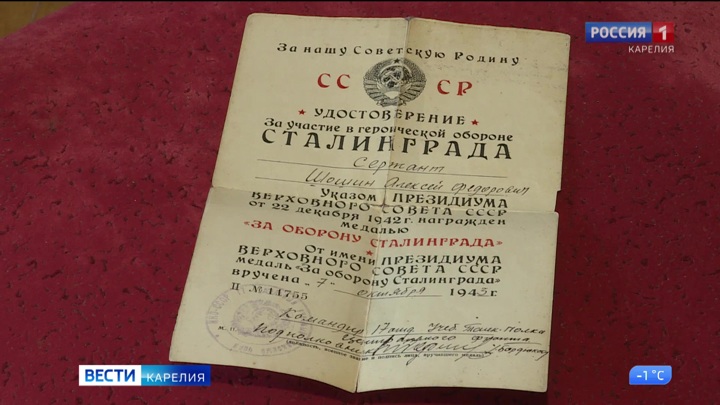 РОССИЯ 1
КАРЕЛИЯ
За нашу Советскую Родину
СС СР
УДОСТОВЕРЕНИЕ
За участие в героической обороне
СТАЛИНГРАДА
Сержант
Шошин Алексей Федорович
Указом ПРЕЗИДИУМА
ВЕРХОВНОГО СОВЕТА СССР
от 22 декабря 1942 г. награжден
медалью
«ЗА ОБОРОНУ СТАЛИНГРАДА»
От имени ПРЕЗИДИУМА
ВЕРХОВНОГО СОВЕТА СССР
медаль «За оборону Сталинграда»
вручена „7" октября 1943 г.
П № 11755
Командир 17 Учеб Полка
Центрального фронта
Подполковник
ВЕСТИ КАРЕЛИЯ
-1°C